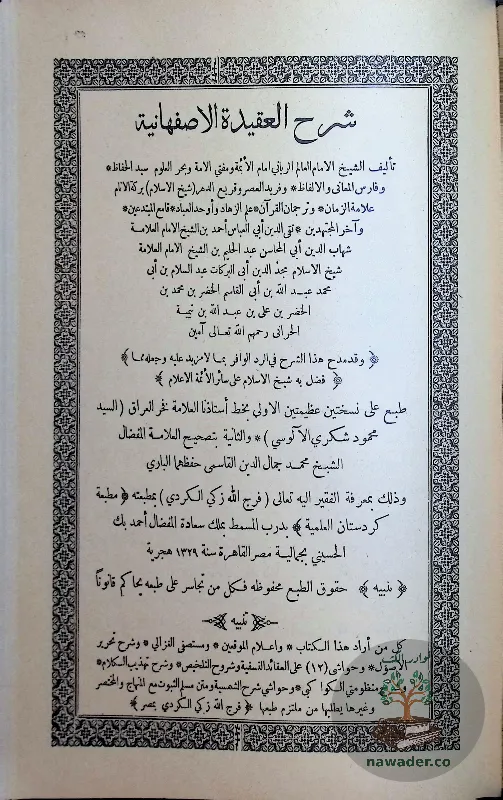 شرح العقيدة الاصفهانية
تأليف الشيخ الامام العالم الرباني امام الأئمة ومفتي الامة وبحر العلوم سيد الحفاظ *
وفارس المعانى والالفاظ * وفريد العصر وقريع الدهر (شيخ الاسلام) بركة الانام
علامة الزمان * وترجمان القرآن * علم الزهاد وأوحد العباد * قامع المبتدعين *
وآخر المجتهدين * تقى الدين أبى العباس أحمد بن الشيخ الامام العلامة
شهاب الدين أبي المحاسن عبد الحليم بن الشيخ الامام العلامة
شيخ الاسلام مجد الدين أبى البركات عبد السلام بن أبى
محمد عبد الله بن أبى القاسم الخضر بن محمد بن
الخضر بن على بن عبد الله بن تيمية
الحرانى رحمهم الله تعالى آمين
﴿ وقد مدح هذا الشرح في الرد الوافر بما لا مزيد عليه وجعله مما ﴾
﴿ فضل به شيخ الاسلام على سائر الأئمة الاعلام ﴾
طبع على نسختين عظيمتين الاولى بخط أستاذنا العلامة فخر العراق (السيد
محمود شكري الآلوسي) * والثانية بتصحيح العلامة المفضال
الشيخ محمد جمال الدين القاسمي حفظهما الباري
وذلك بمعرفة الفقير اليه تعالى (فرج الله زكي الكردي) بمطبعته ﴿ مطبعة
كردستان العلمية ﴾ بدرب المسمط بملك سعادة المفضال أحمد بك
الحسيني بجمالية مصر القاهرة سنة ١٣٢٩ هجرية
﴿ تنبيه ﴾ حقوق الطبع محفوظه فكل من تجاسر على طبعه يحاكم قانوناً
تنبيه
كل من أراد هذا الكتاب * واعلام الموقعين * ومستصفى الغزالي * وشرح تحرير
الاصول * وحواشى (١٢) على العقائد النسفية وشروح التلخيص * وشرح تهذيب الكلام *
منظومتي الكواكبي * وحواشي شرح الشمسية ومتن مسلم الثبوت مع المنهاج والمختصر
وغيرها يطلبها من ملتزم طبعها ﴿ فرج الله زكي الكردي بمصر ﴾
nawader.co